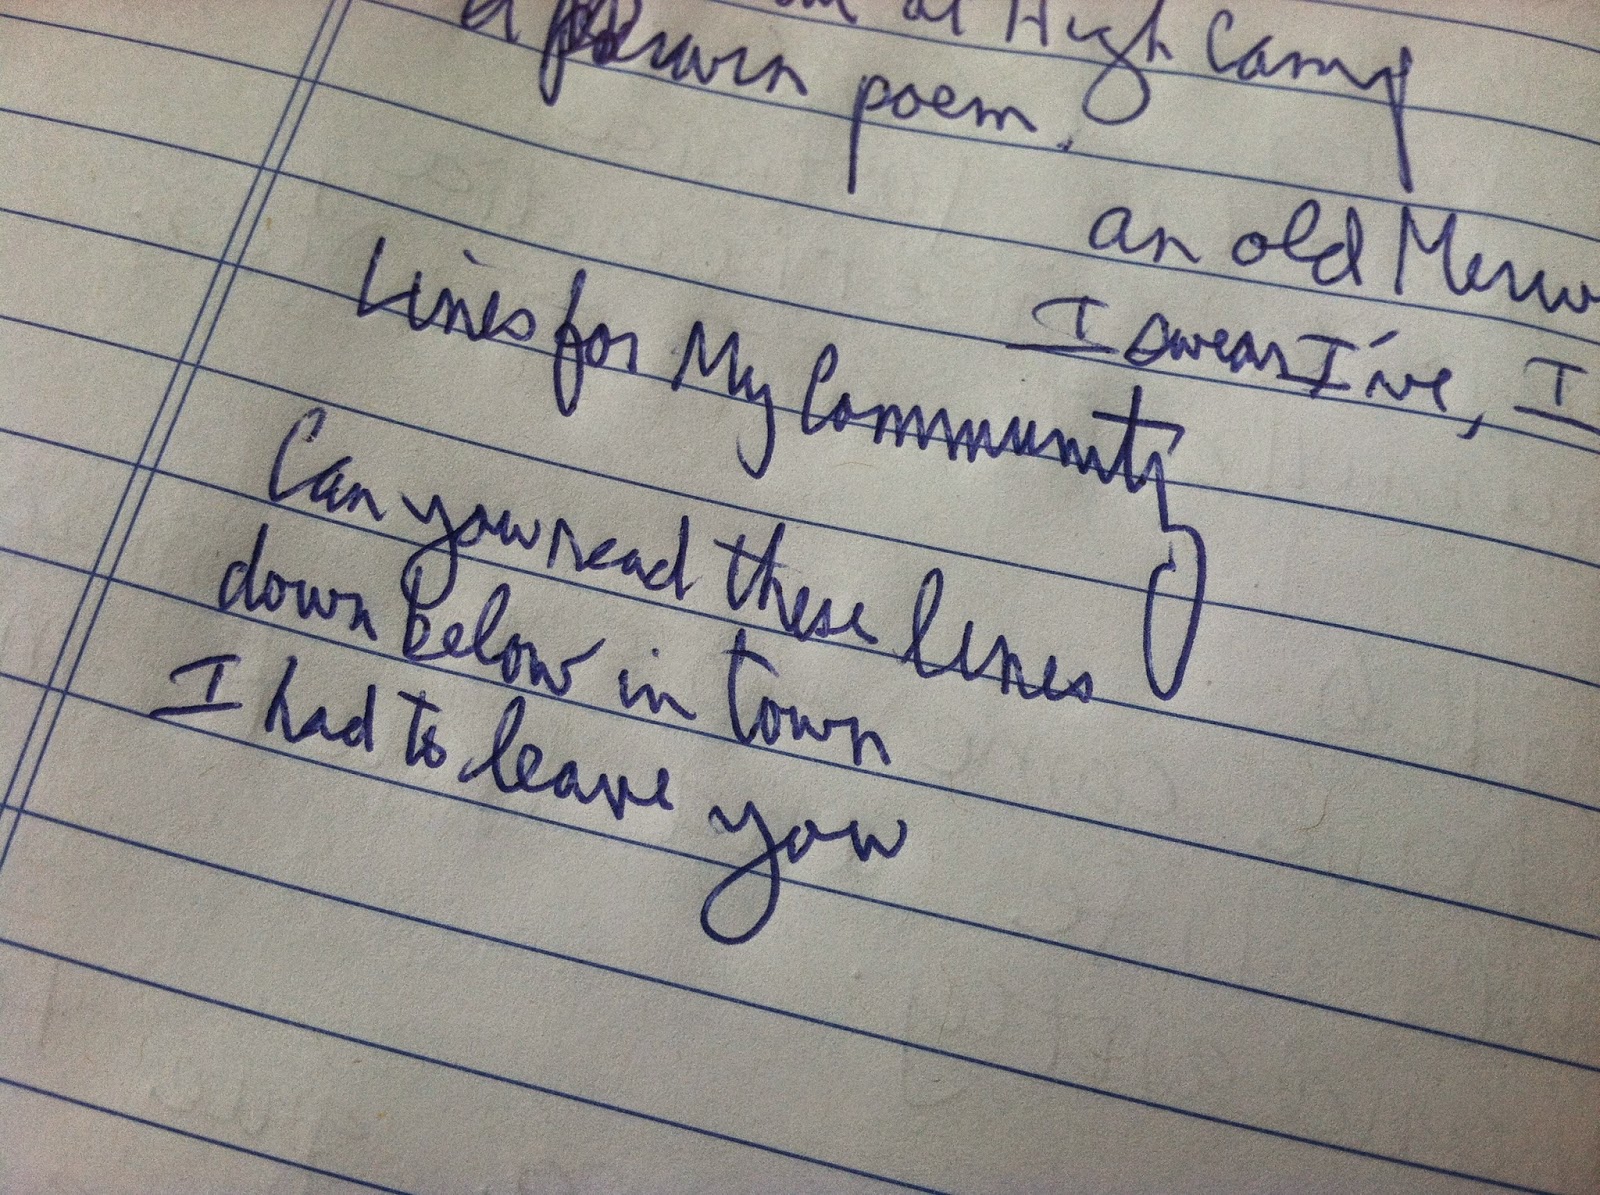 at High Camp
a poem.
an old
I swear I've, I
Lines for My Community
Can you read these lines
down below in town
I had to leave you